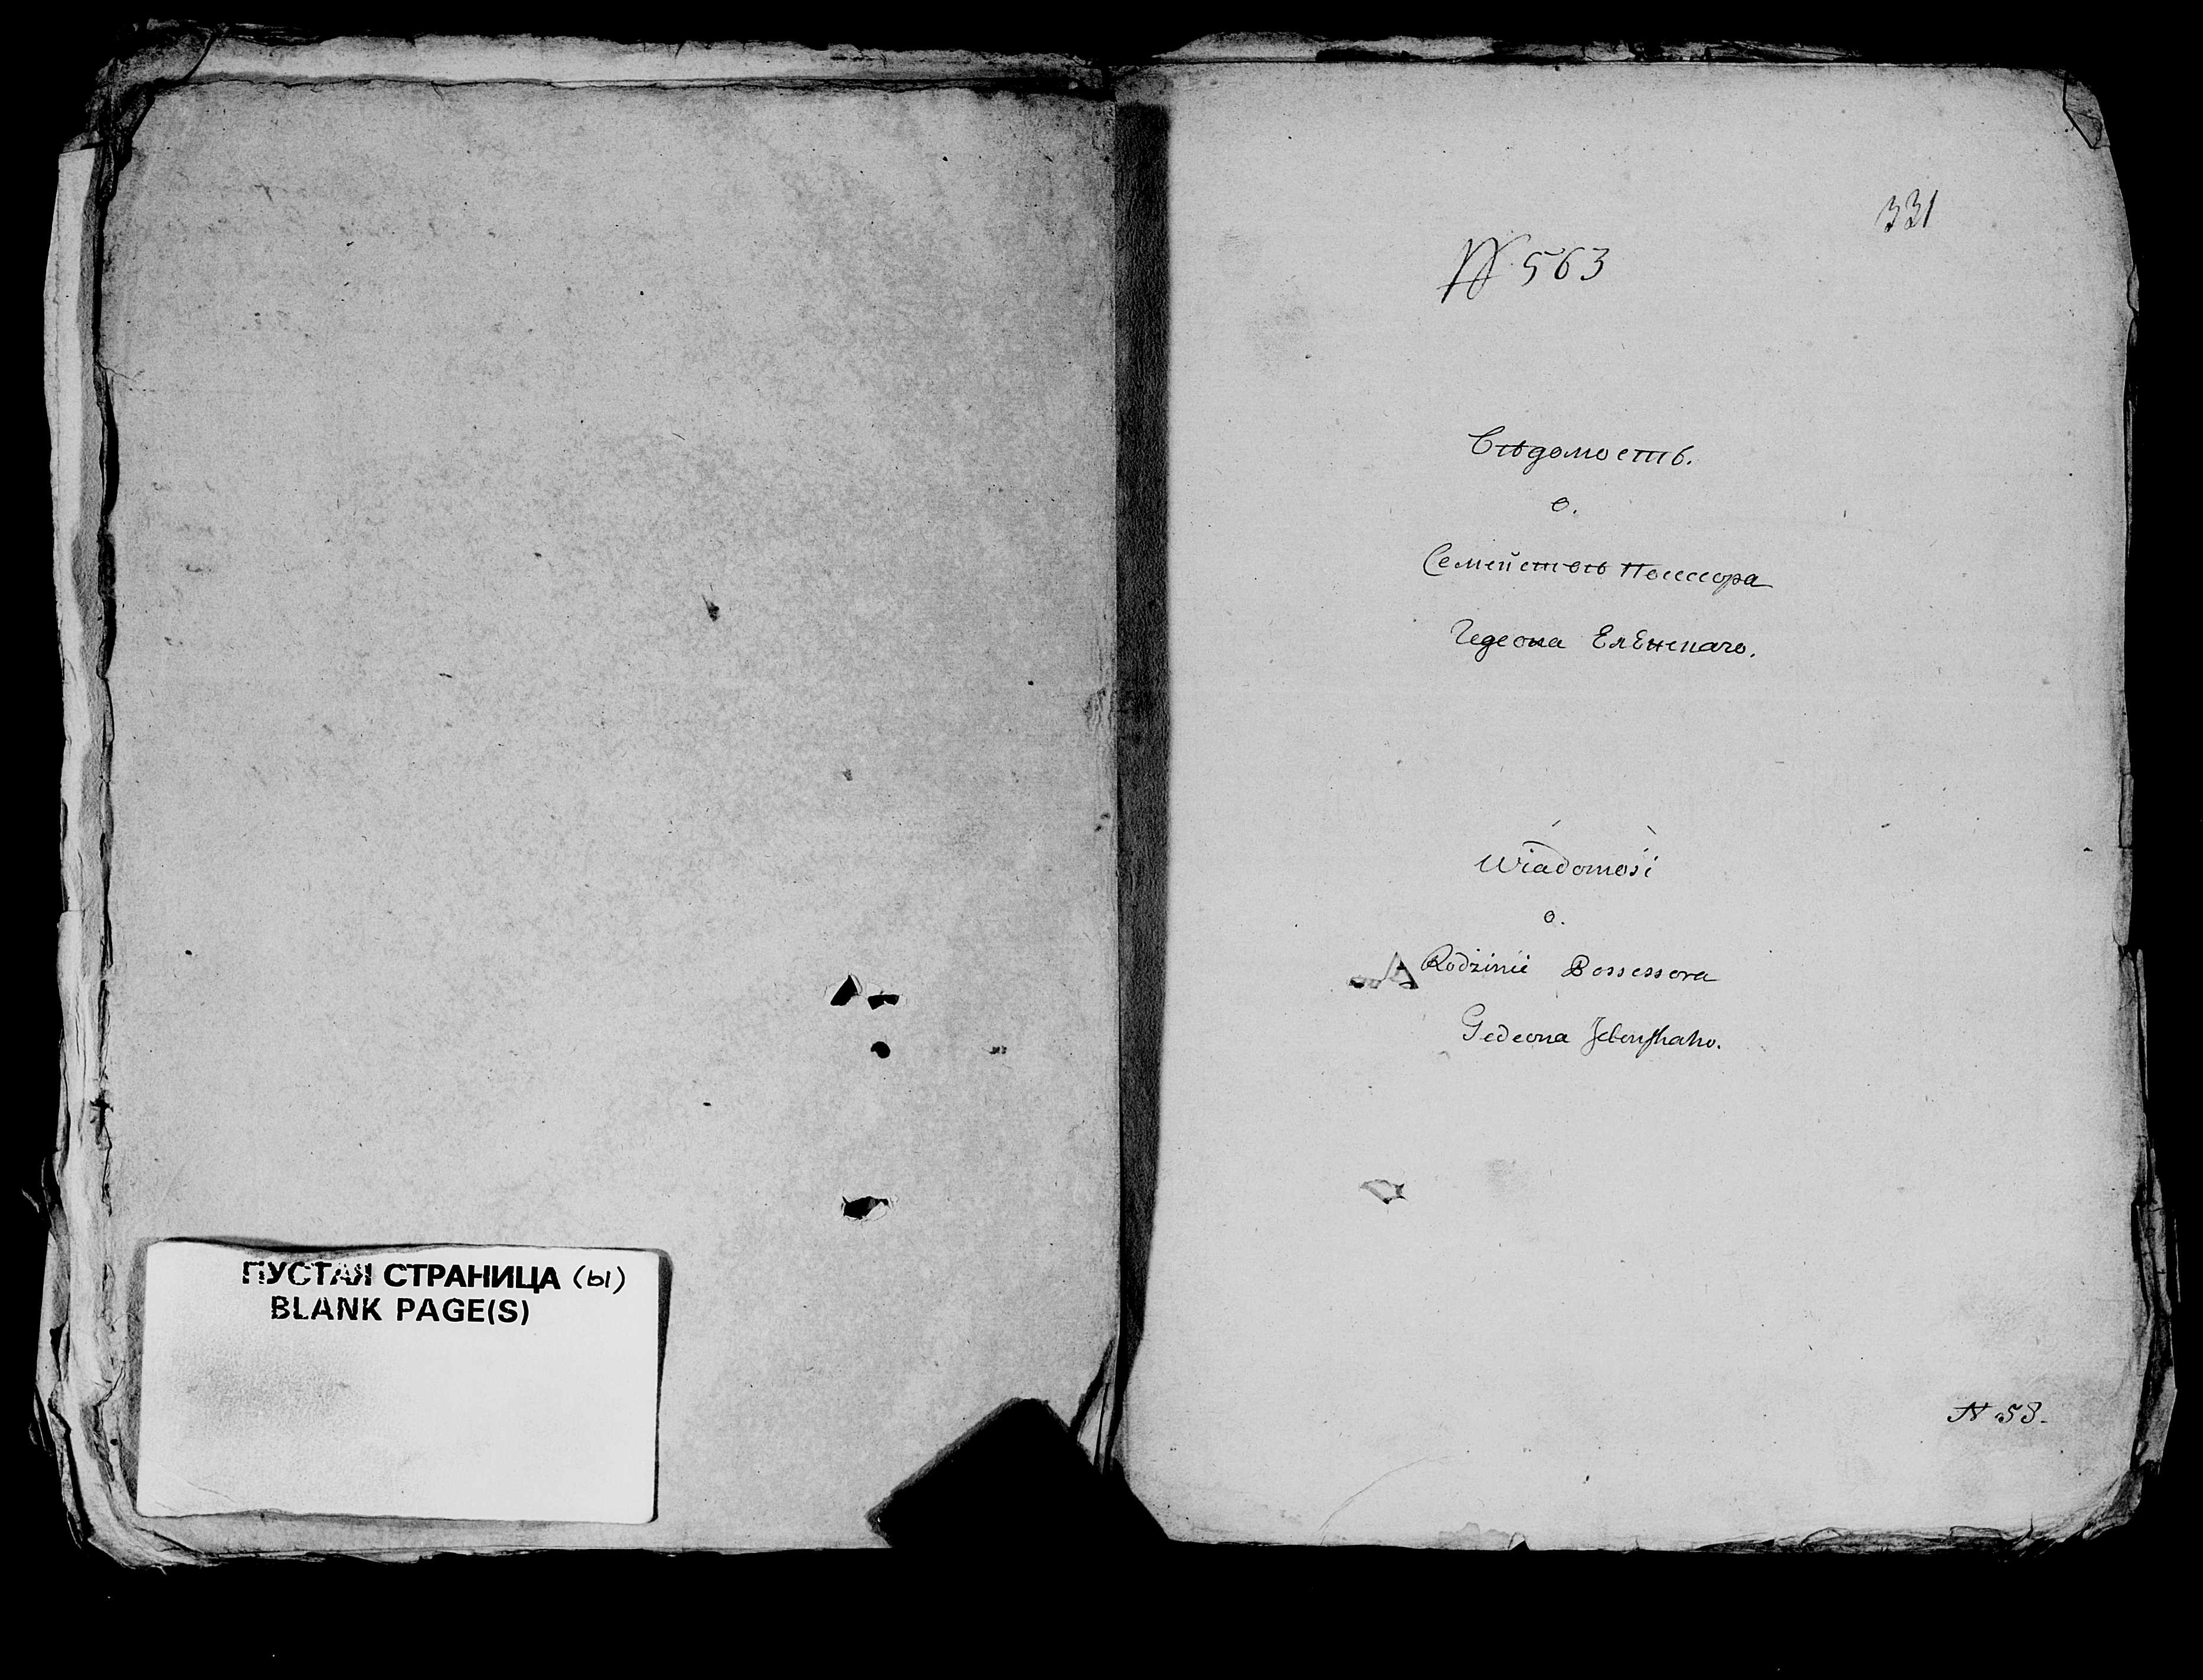 ПУСТАЯ СТРАНИЦА (ы)
BLANK PAGE(S)
331
№ 563
Вѣдомость.
о.
Семействѣ Посессора
Гедеона Еленскаго.
Wiadomość
o.
Rodzinie Possessora
Gedeona Jelenskaho.
N 58.